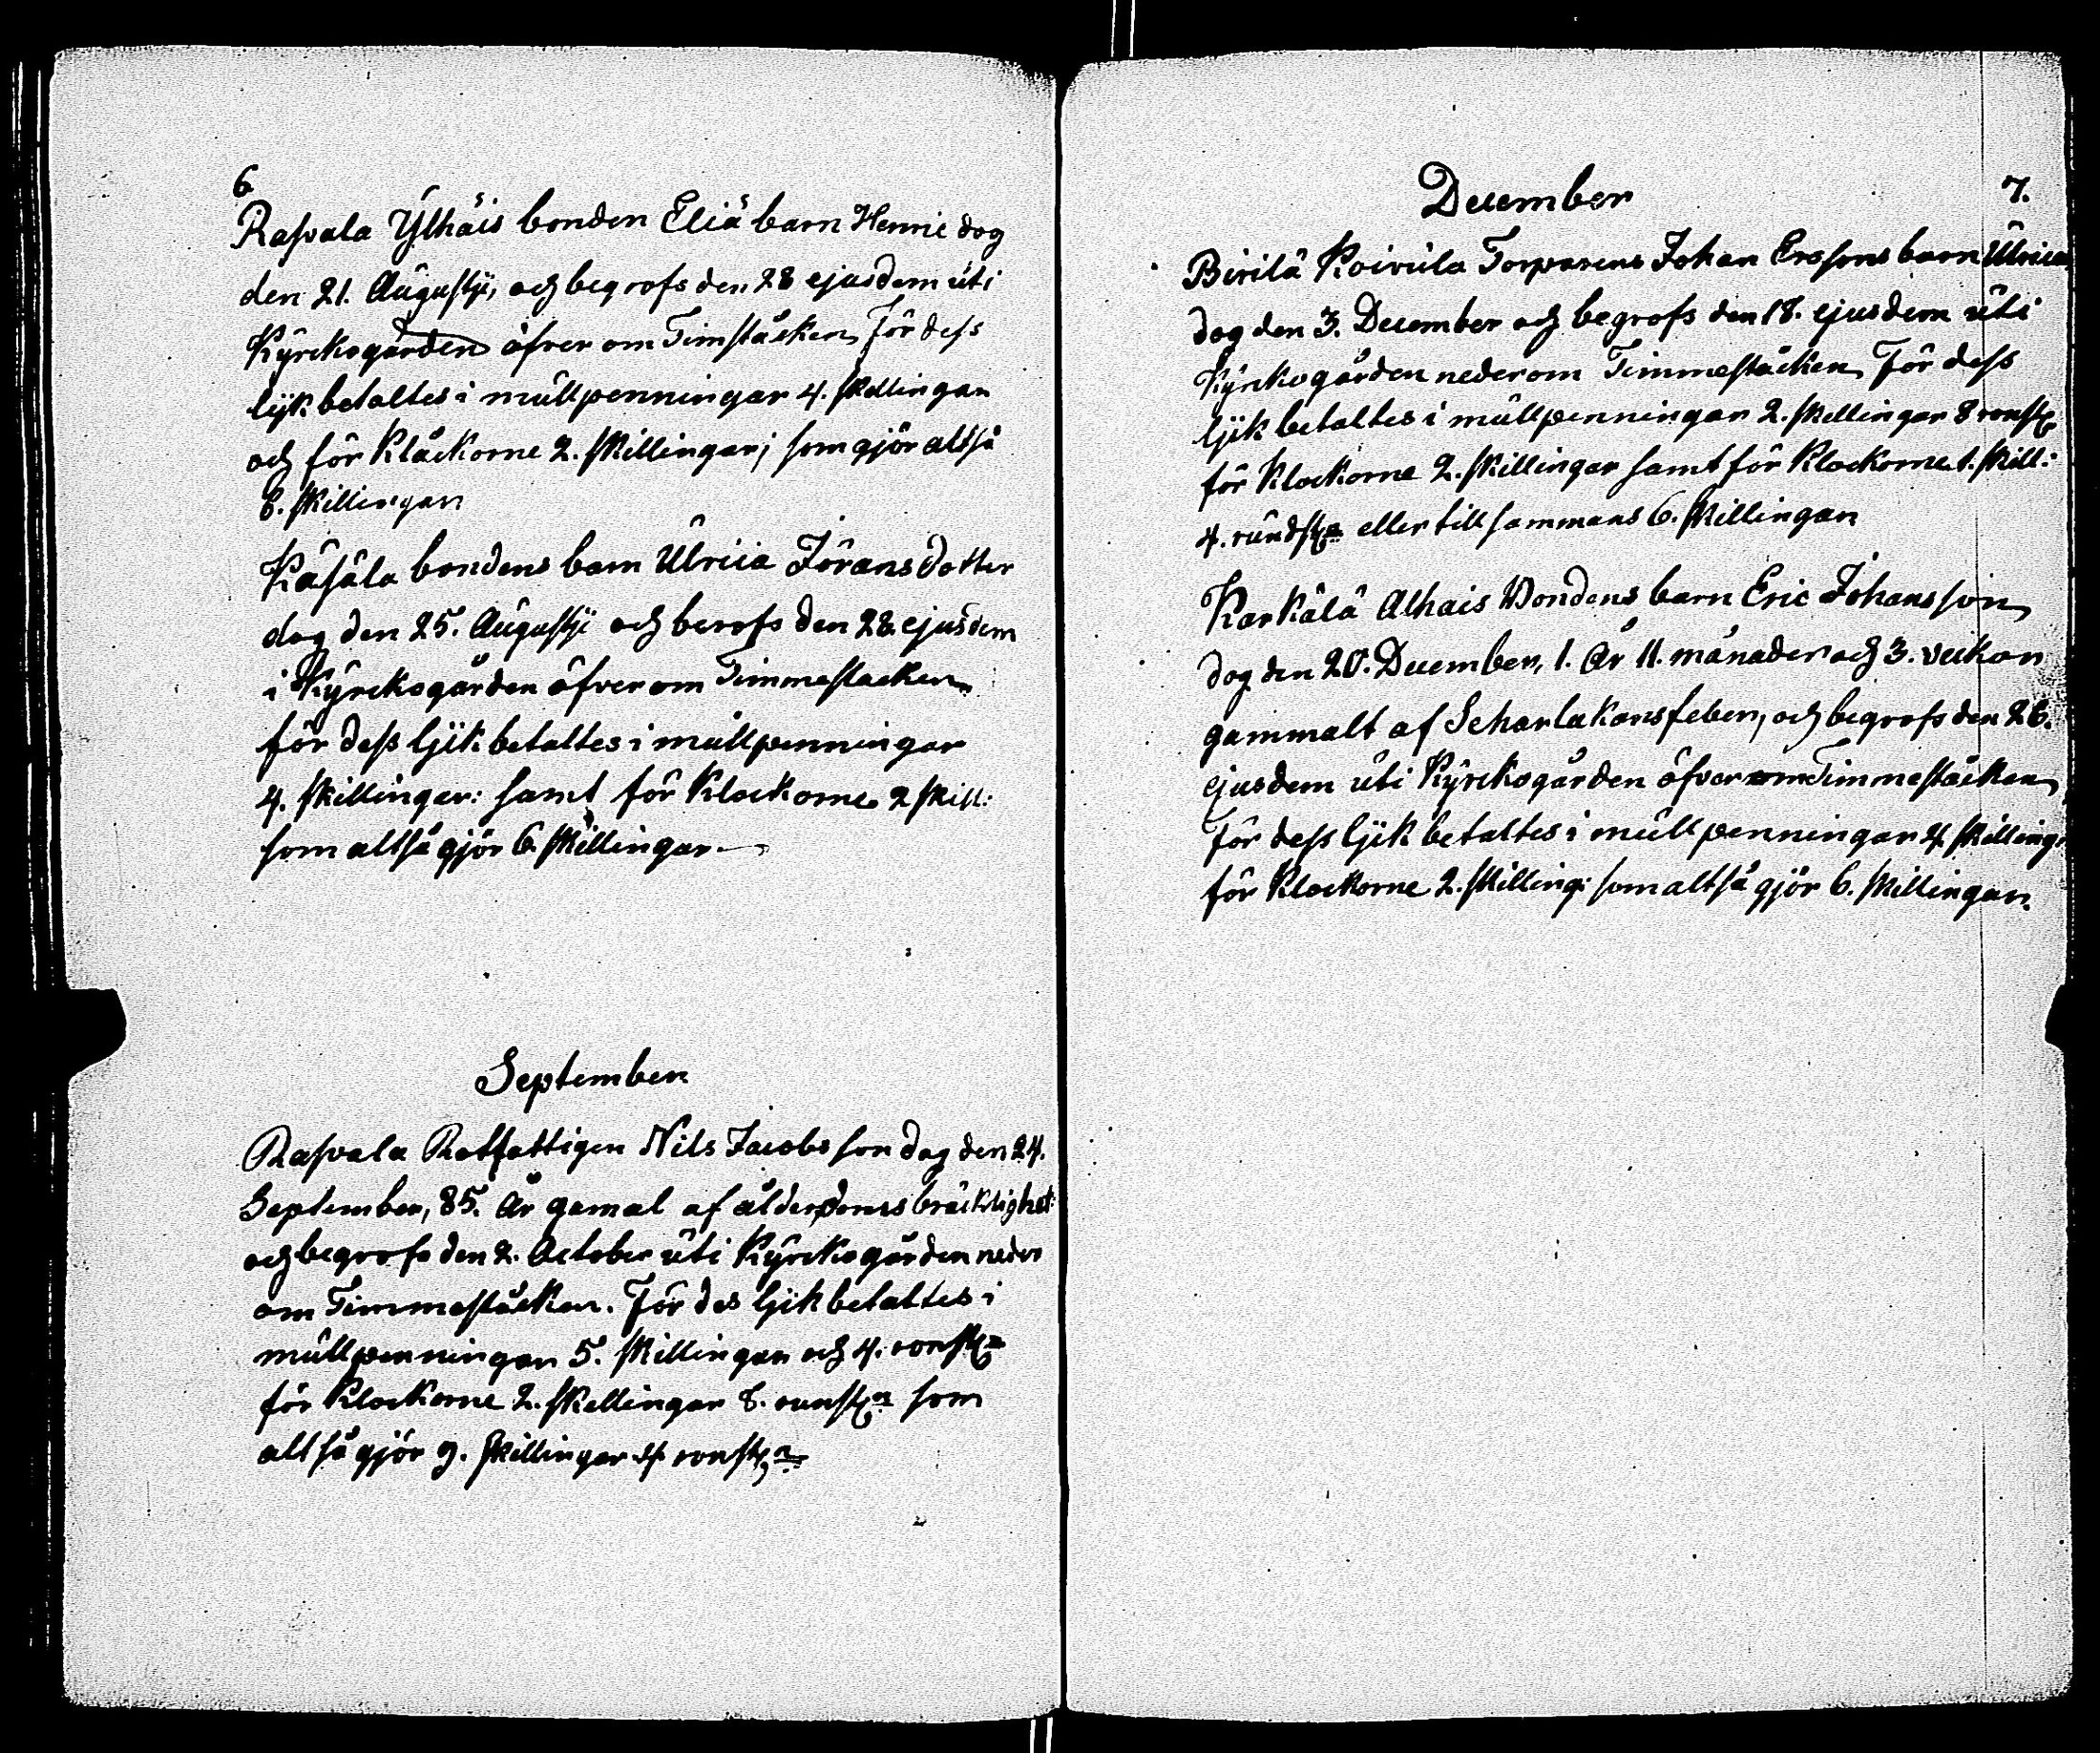 6
Rasvala Ÿlhäis bonden Eliä barn Henric dog
den 21. Augustji, och begrofs den 28 ejusdem uti
Kÿrckogården öfver om Timståcken, för dess
lijk betaltes i mullpenningar 4. skillingar
och för Klåckorne 2. skillingar; som gjör altså
6. skillingar
Kåsåla bondens barn Ulrica Jöransdotter
dog den 25. Augustji och berofs den 28 ejusdem
i Kÿrckogården öfver om Timmestacken
för dess lijk betaltes i mullpenningar
4. skillingar: samt för Klockorne 2 skill:
som altså gjör 6 skillingar
September
Rasvala Rotfattigen Nils Jacobsson dog den 24.
September, 85. år gamal af ålderdoms bräcklighet:
och begrofs den 2. October uti Kÿrckogården neder
om Timmeståcken. För des lijk betaltes i
mullpenningar 5. skillingar och 4. ronst
för Klockorne 2. skillingar 8. runst som
altså gjör 9. skillingar 4 ronst
December
7.
Birilä Koivula Torparens Johan Erssons barn Ulrica
dog den 3. December och begrofs den 18. ejusdem uti
Kÿrckogården neder om Timmeståcken, för dess
lijk betaltes i mullpenningar 2. skillingar 8 ronst
för Klockorne 2. skillingar samt för Klockorne 1. skill:
4. rundst eller tillsammans 6. skillingar
Karkälä Alhais Bondens barn Eric Johansson
dog den 20. December, 1. år 11. månader och 3. veckor
gammalt af Scharlakansfeber, och begrofs den 26.
ejusdem uti Kÿrckogården öfver om Timmeståcken,
för dess lijk betaltes i mullpenningar 4. skilling:
för Klockorne 2. skilling: som altså gjör 6. skillingar.